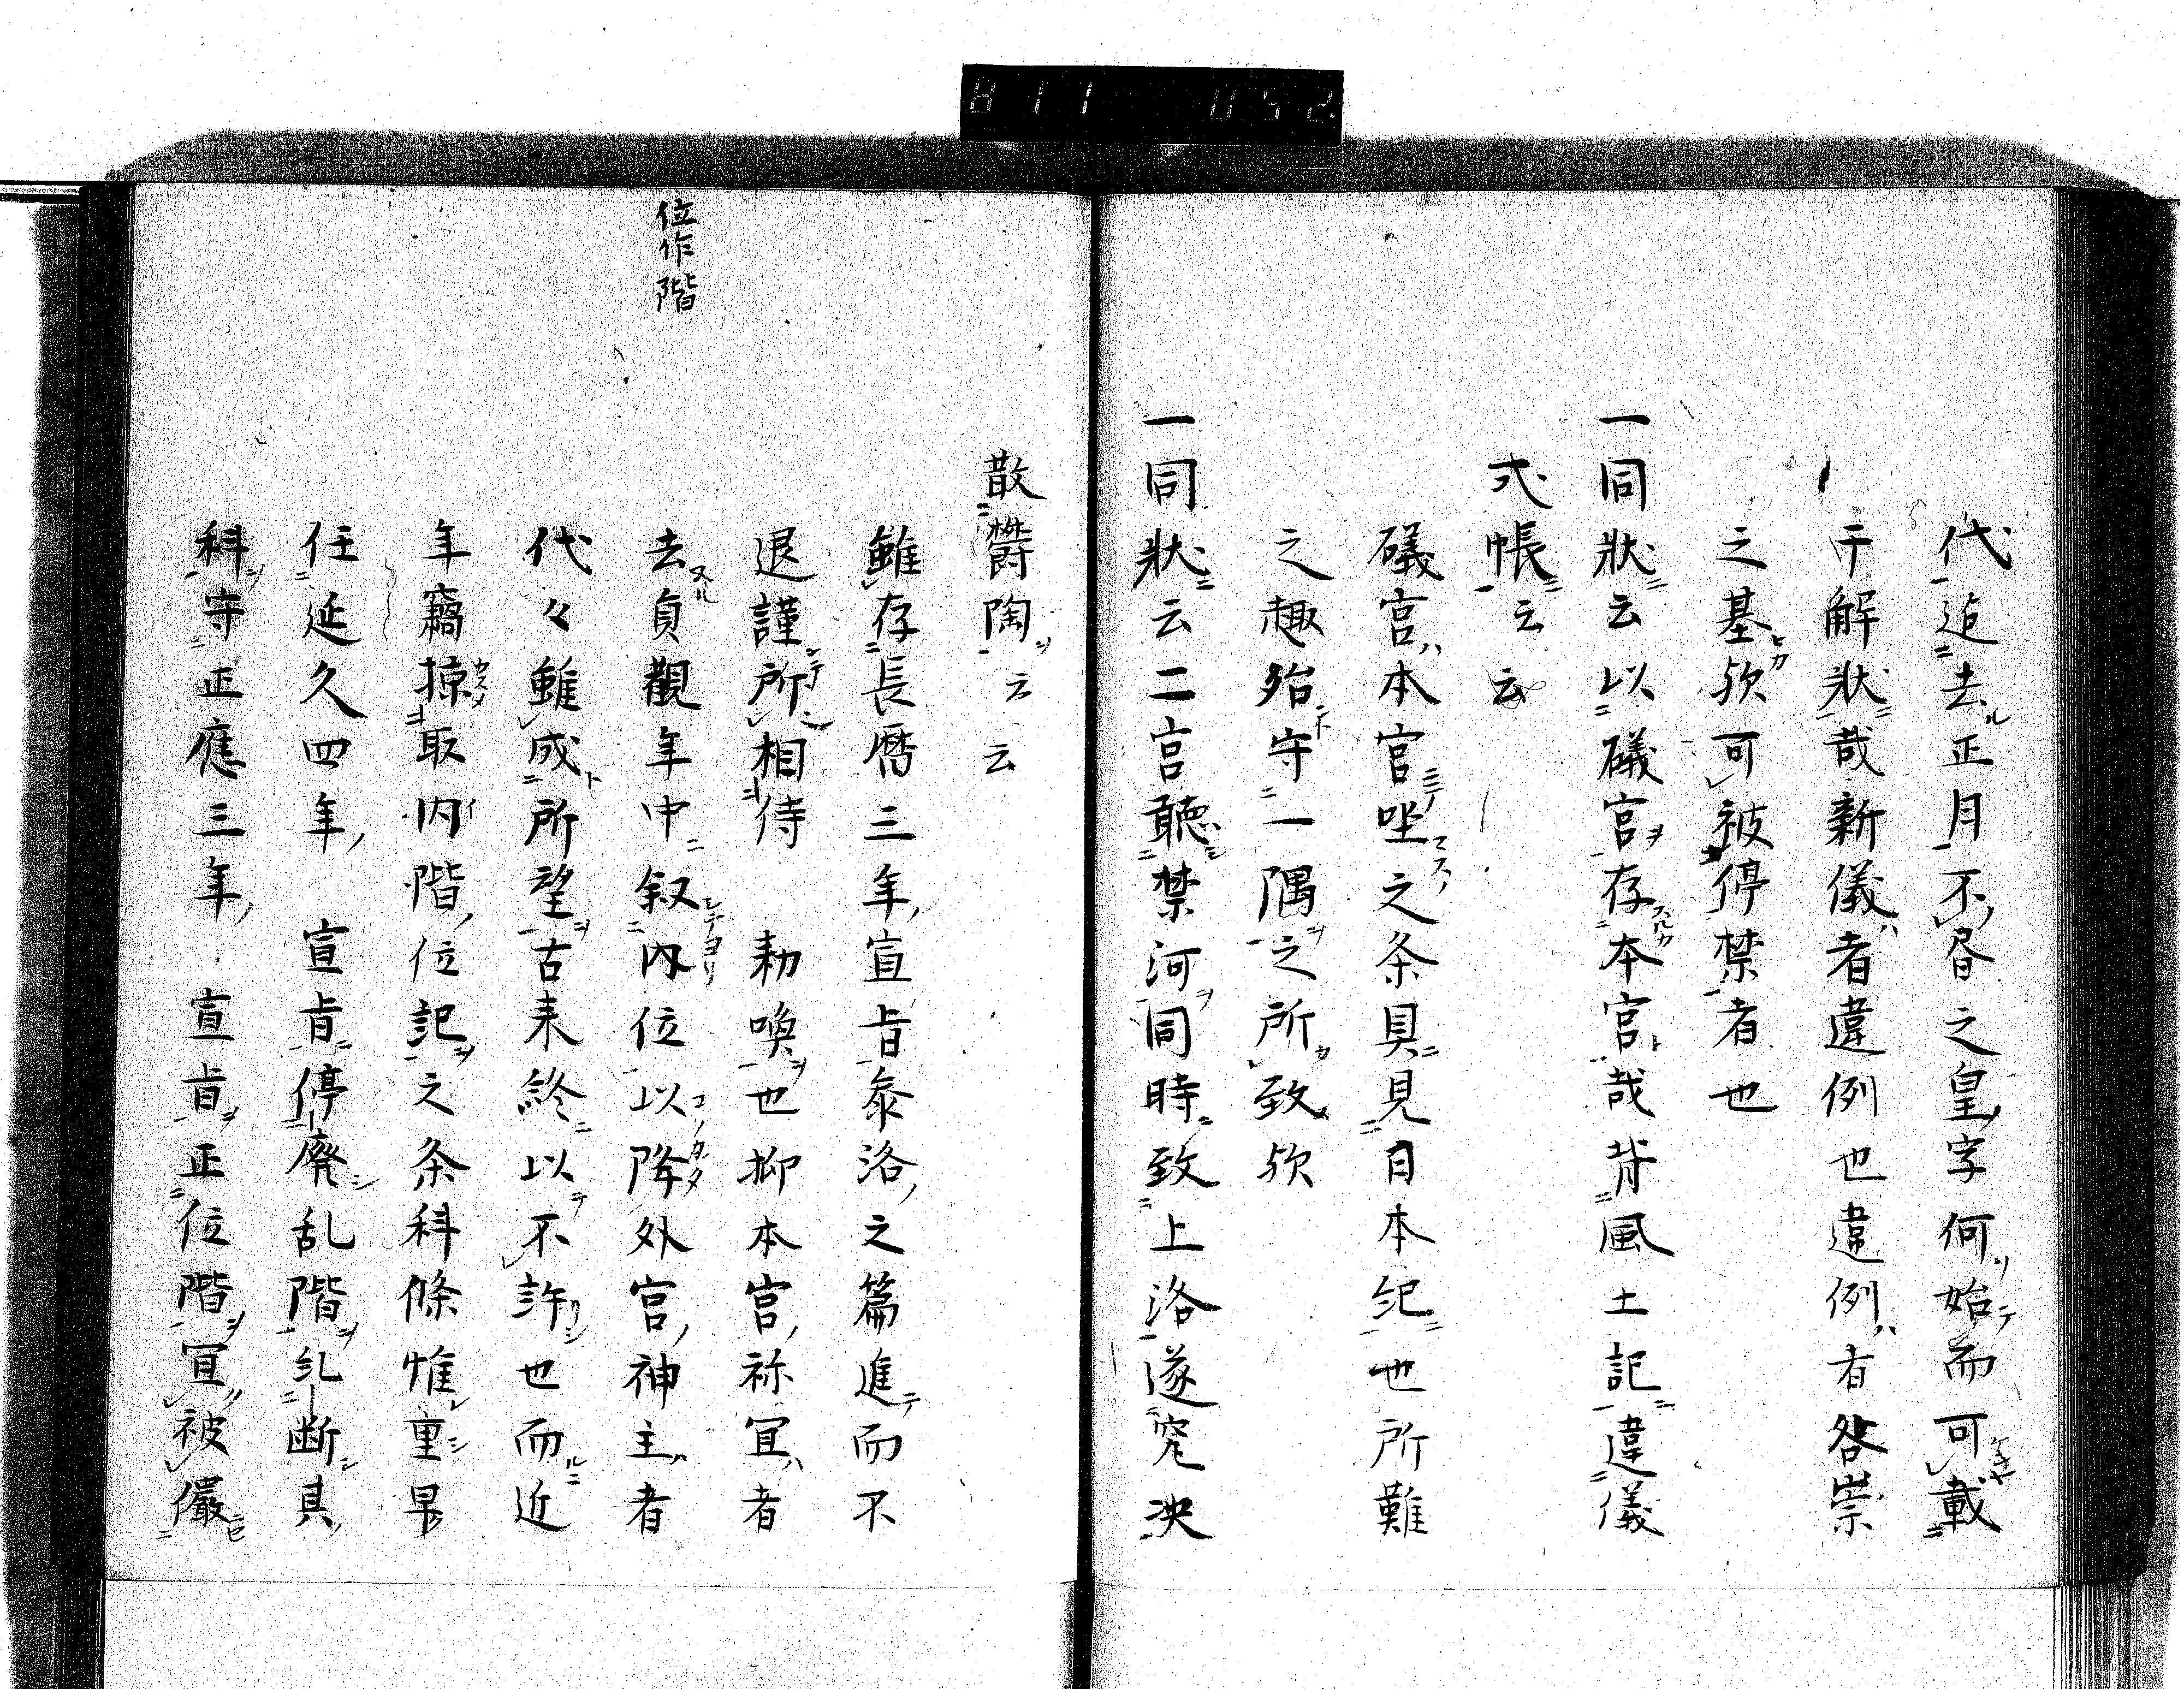 代迄去正月不昏之皇字何始而可載
于解狀哉新儀者違例也違例者咎崇
之基欤可被停禁者也
一同狀云以礒宮存本宮哉背風土記違儀
式帳云云
礒宮本宮坐之条具見日本紀也所難
之趣殆守一隅之所致欤
一同狀云二宮聴禁河同時致上洛遂究决
散欝陶云云
雖存長暦三年宣旨参洛之篇進而不
退謹所相待 勅喚也抑本宮祢宜者
去貞観年中叙内位以降外宮神主者
代々雖成所望古来終以不許也而近
年竊掠取内階位記之条科條惟重早
任延久四年 宣旨停廃乱階糺断其
科守正應三年 宣旨正位階宜被儼
位作階
811 052